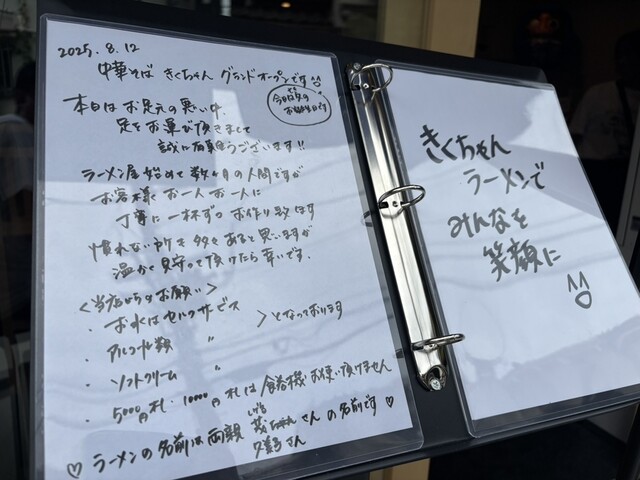 2025.8.12
中華そば きくちゃん グランドオープンです
今日は父の
お誕生日です
本日はお足元の悪い中
足をお運び頂きまして
誠に有難うございます!!
ラーメン屋始めて数ヶ月の人間ですが
お客様お一人お一人に
丁寧に一杯ずつお作り致します
慣れない所も多々あると思いますが
温かく見守って頂けたら幸いです。
<当店からのお願い>
・お水はセルフサービス
・アルコール類 〃 >となっております
・ソフトクリーム 〃
・5000円札・10000円札は券売機お使い頂けません
♡ラーメンの名前は両親 茂ちゃん さんの名前です♡
しげる
さん
きくちゃん
ラーメンで
みんなを
笑顔に